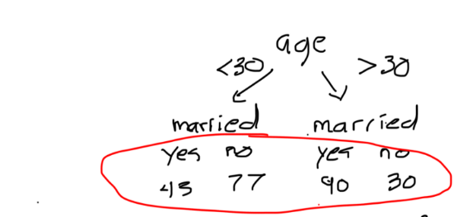 age
<30 >30
married married
yes no yes no
43 77 90 30